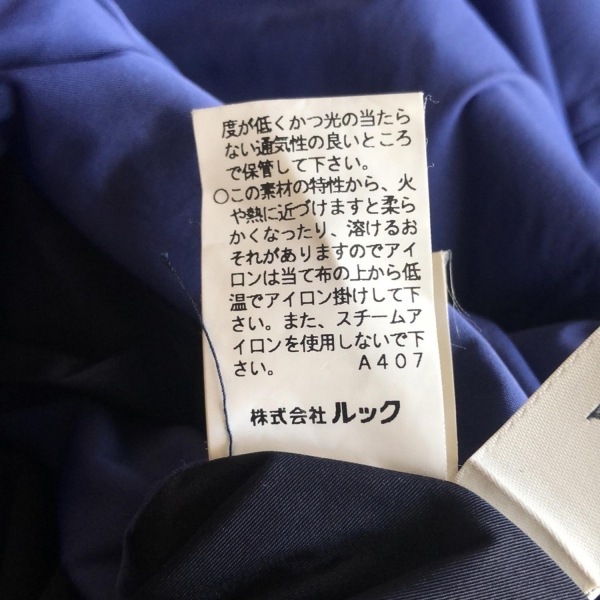 度が低くかつ光の当たら
ない通気性の良いところ
で保管して下さい。
○この素材の特性から、火
や熱に近づけますと柔ら
かくなったり、溶けるお
それがありますのでアイ
ロンは当て布の上から低
温でアイロン掛けして下
さい。また、スチームア
イロンを使用しないで下
さい。 A407
株式会社 ルック